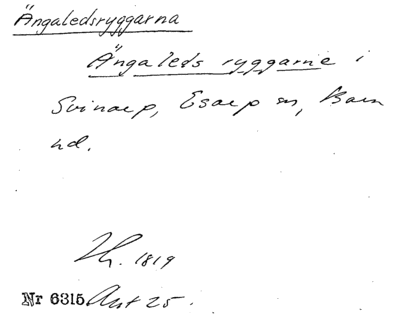 Ängaledsryggarna
Ängaleds ryggarne i
Svinarp, Esarp sn, Bara
hd.
1819
Nr 6315 Ant 25.